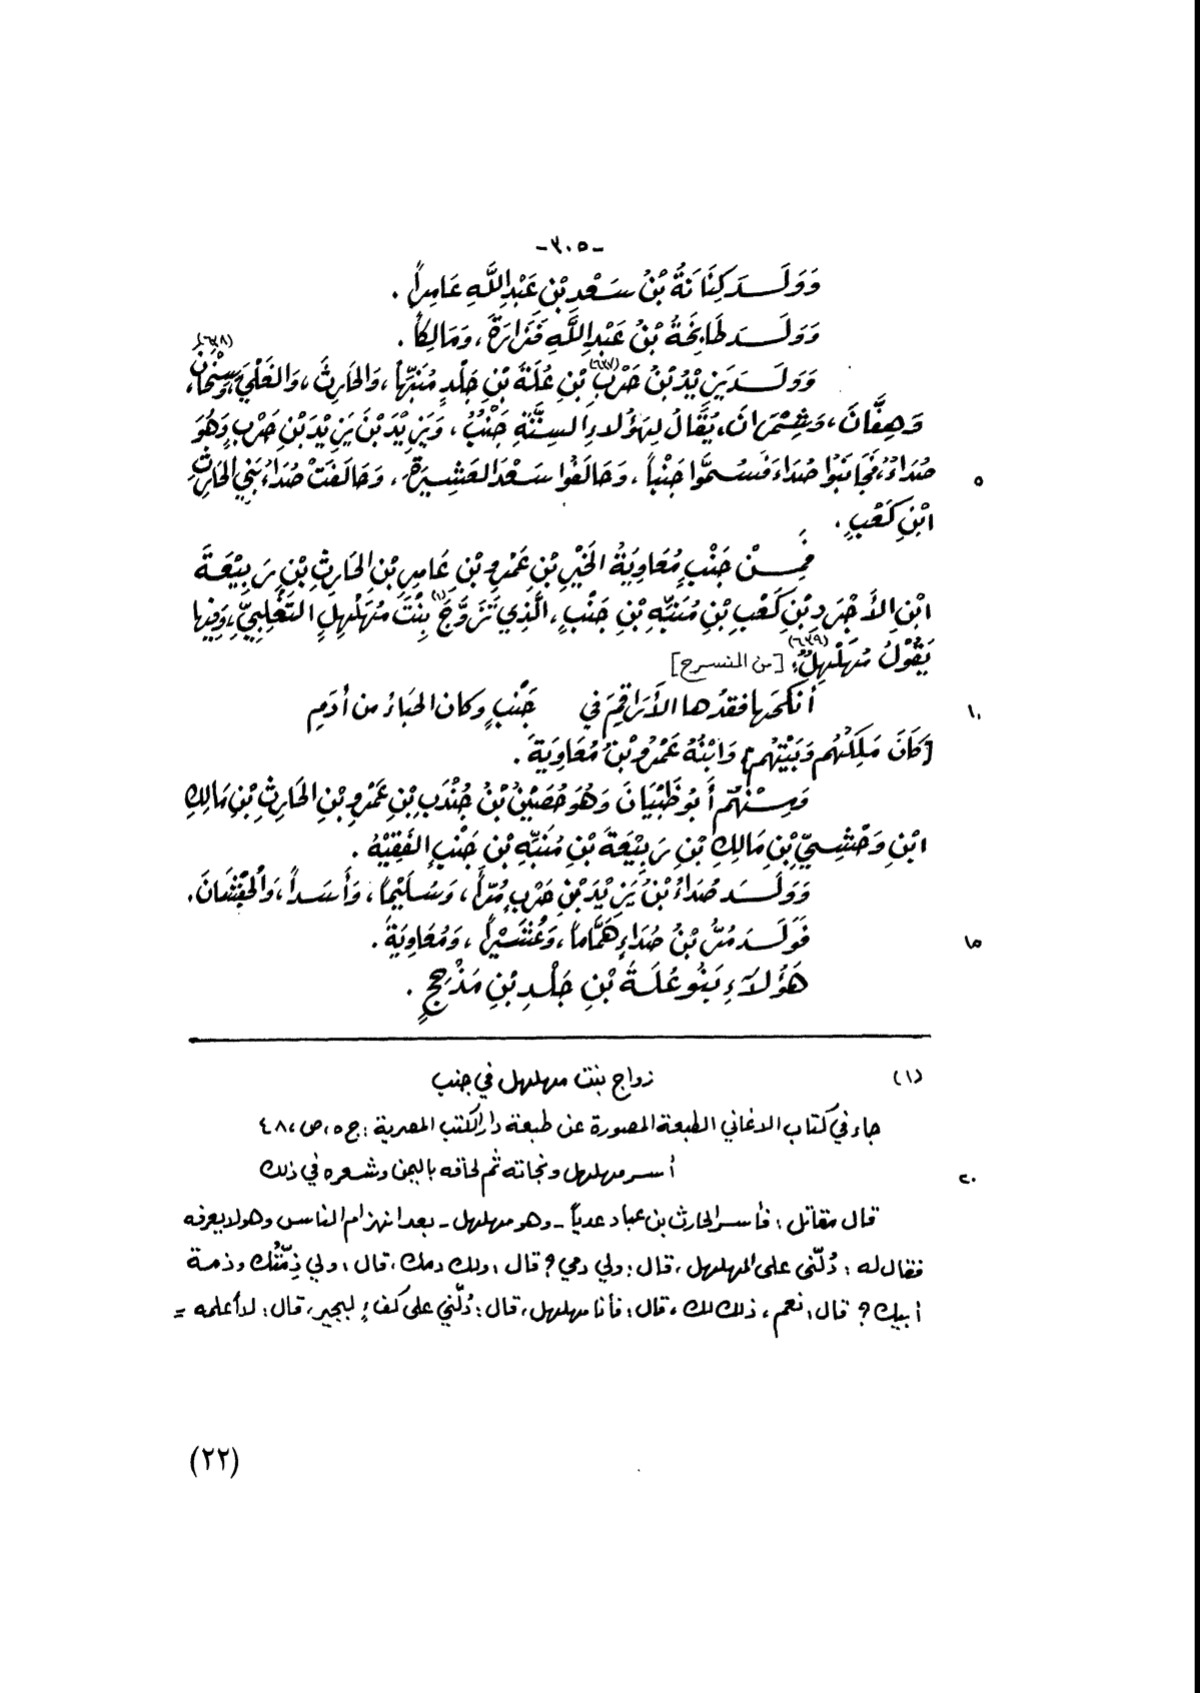 -٣٠٥-
وَوَلَـدَ كِنَانَةُ بْنُ سَعْدِ بْنِ عَبْدِ اللَّهِ عَامِراً .
وَوَلَـدَ طَابِخَةُ بْنُ عَبْدِ اللَّهِ فَزَارَةَ ، وَمَالِكاً .
وَوَلَـدَ يَزِيْدُ بْنُ حَرْبِ (٦٣٧) بْنِ عُلَةَ بْنِ جَلْدٍ مُنَبِّهاً ، وَالحَارِثَ ، وَالغَلْيَ ، وَسِنْحَانَ (٦٣٨) ،
وَهِفَّانَ ، وَشِمْرَانَ ، يُقَالُ لِهَؤُلاءِ السِتَّةِ جَنْبُ ، وَيَزِيْدَ بْنَ يَزِيْدَ بْنِ حَرْبٍ وَهُوَ
صُدَاءُ ، فَجَانَبُوا صُدَاءَ فَسُمُّوا جَنْباً ، وَحَالَفُوا سَعْدَ العَشِيرَةِ ، وَحَالَفَتْ صُدَاءُ بَنِي الحَارِثِ ٥
ابْنِ كَعْبٍ .
فَمِـنْ جَنْبٍ مُعَاوِيَةُ الخَيْرِ بْنِ عَمْرِو بْنِ عَامِرِ بْنِ الحَارِثِ بْنِ رَبِيْعَةَ
ابْنِ الأَجْرَدِ بْنِ كَعْبِ بْنِ مُنَبِّهِ بْنِ جَنْبٍ ، الَّذِي تَزَوَّجَ (١) بِنْتَ مُهَلْهِلٍ التَغْلِبِيِّ ، وَفِيهَا
يَقُوْلُ مُهَلْهِلٌ (٦٣٩) : [من المنسرح]
أنكحها فقدُها الأَرَاقِمَ في جَنْبٍ وكان الحَبَاءُ من أَدَمِ ١٠
[كَانَ مَلِكَهُم وَبَيْتَهُم] وَابْنُهُ عَمْرُو بْنُ مُعَاوِيَةَ .
وَمِـنْهُمْ أَبُو ظَبْيَانَ وَهُوَ حُصَيْنُ بْنُ جُنْدَبِ بْنِ عَمْرِو بْنِ الحَارِثِ بْنِ مَالِكِ
ابْنِ وَحْشِيِّ بْنِ مَالِكِ بْنِ رَبِيْعَةَ بْنِ مُنَبِّهِ بْنِ جَنْبٍ الفَقِيْهُ .
وَوَلَـدَ صُدَاءُ بْنُ يَزِيْدَ بْنِ حَرْبٍ مُرّاً ، وَسُلَيْماً ، وَأَسَداً ،
فَوَلَـدَ مُرُّ بْنُ صُدَاءٍ هَمَّاماً ، ، وَمُعَاوِيَةَ . ١٥
هَؤُلَاءِ بَنُو عُلَةَ بْنِ جَلْدِ بْنِ مَذْحِجٍ .
(١) زواج بنت مهلهل في جنب
جاء في كتاب الاغاني الطبعة المصورة عن طبعة دار الكتب المصرية : ج ٥ ، ص ، ٤٨
أسر مهلهل ونجاته ثم لحاقه باليمن وشعره في ذلك ٢٠
قال مقاتل : فأسر الحارث بن عباد عدياً - وهو مهلهل - بعد انهزام الناس وهو لا يعرفه
فقال له : دُلّني على المهلهل ، قال : ولي دمي ؟ قال : ولك دمك ، قال : ولي ذِمّتُك وذمة
أبيك ؟ قال : نعم ، ذلك لك ، قال : فأنا مهلهل ، قال : دُلّني على كفءٍ لبجير ، قال : لا أعلمه =
(٢٢)